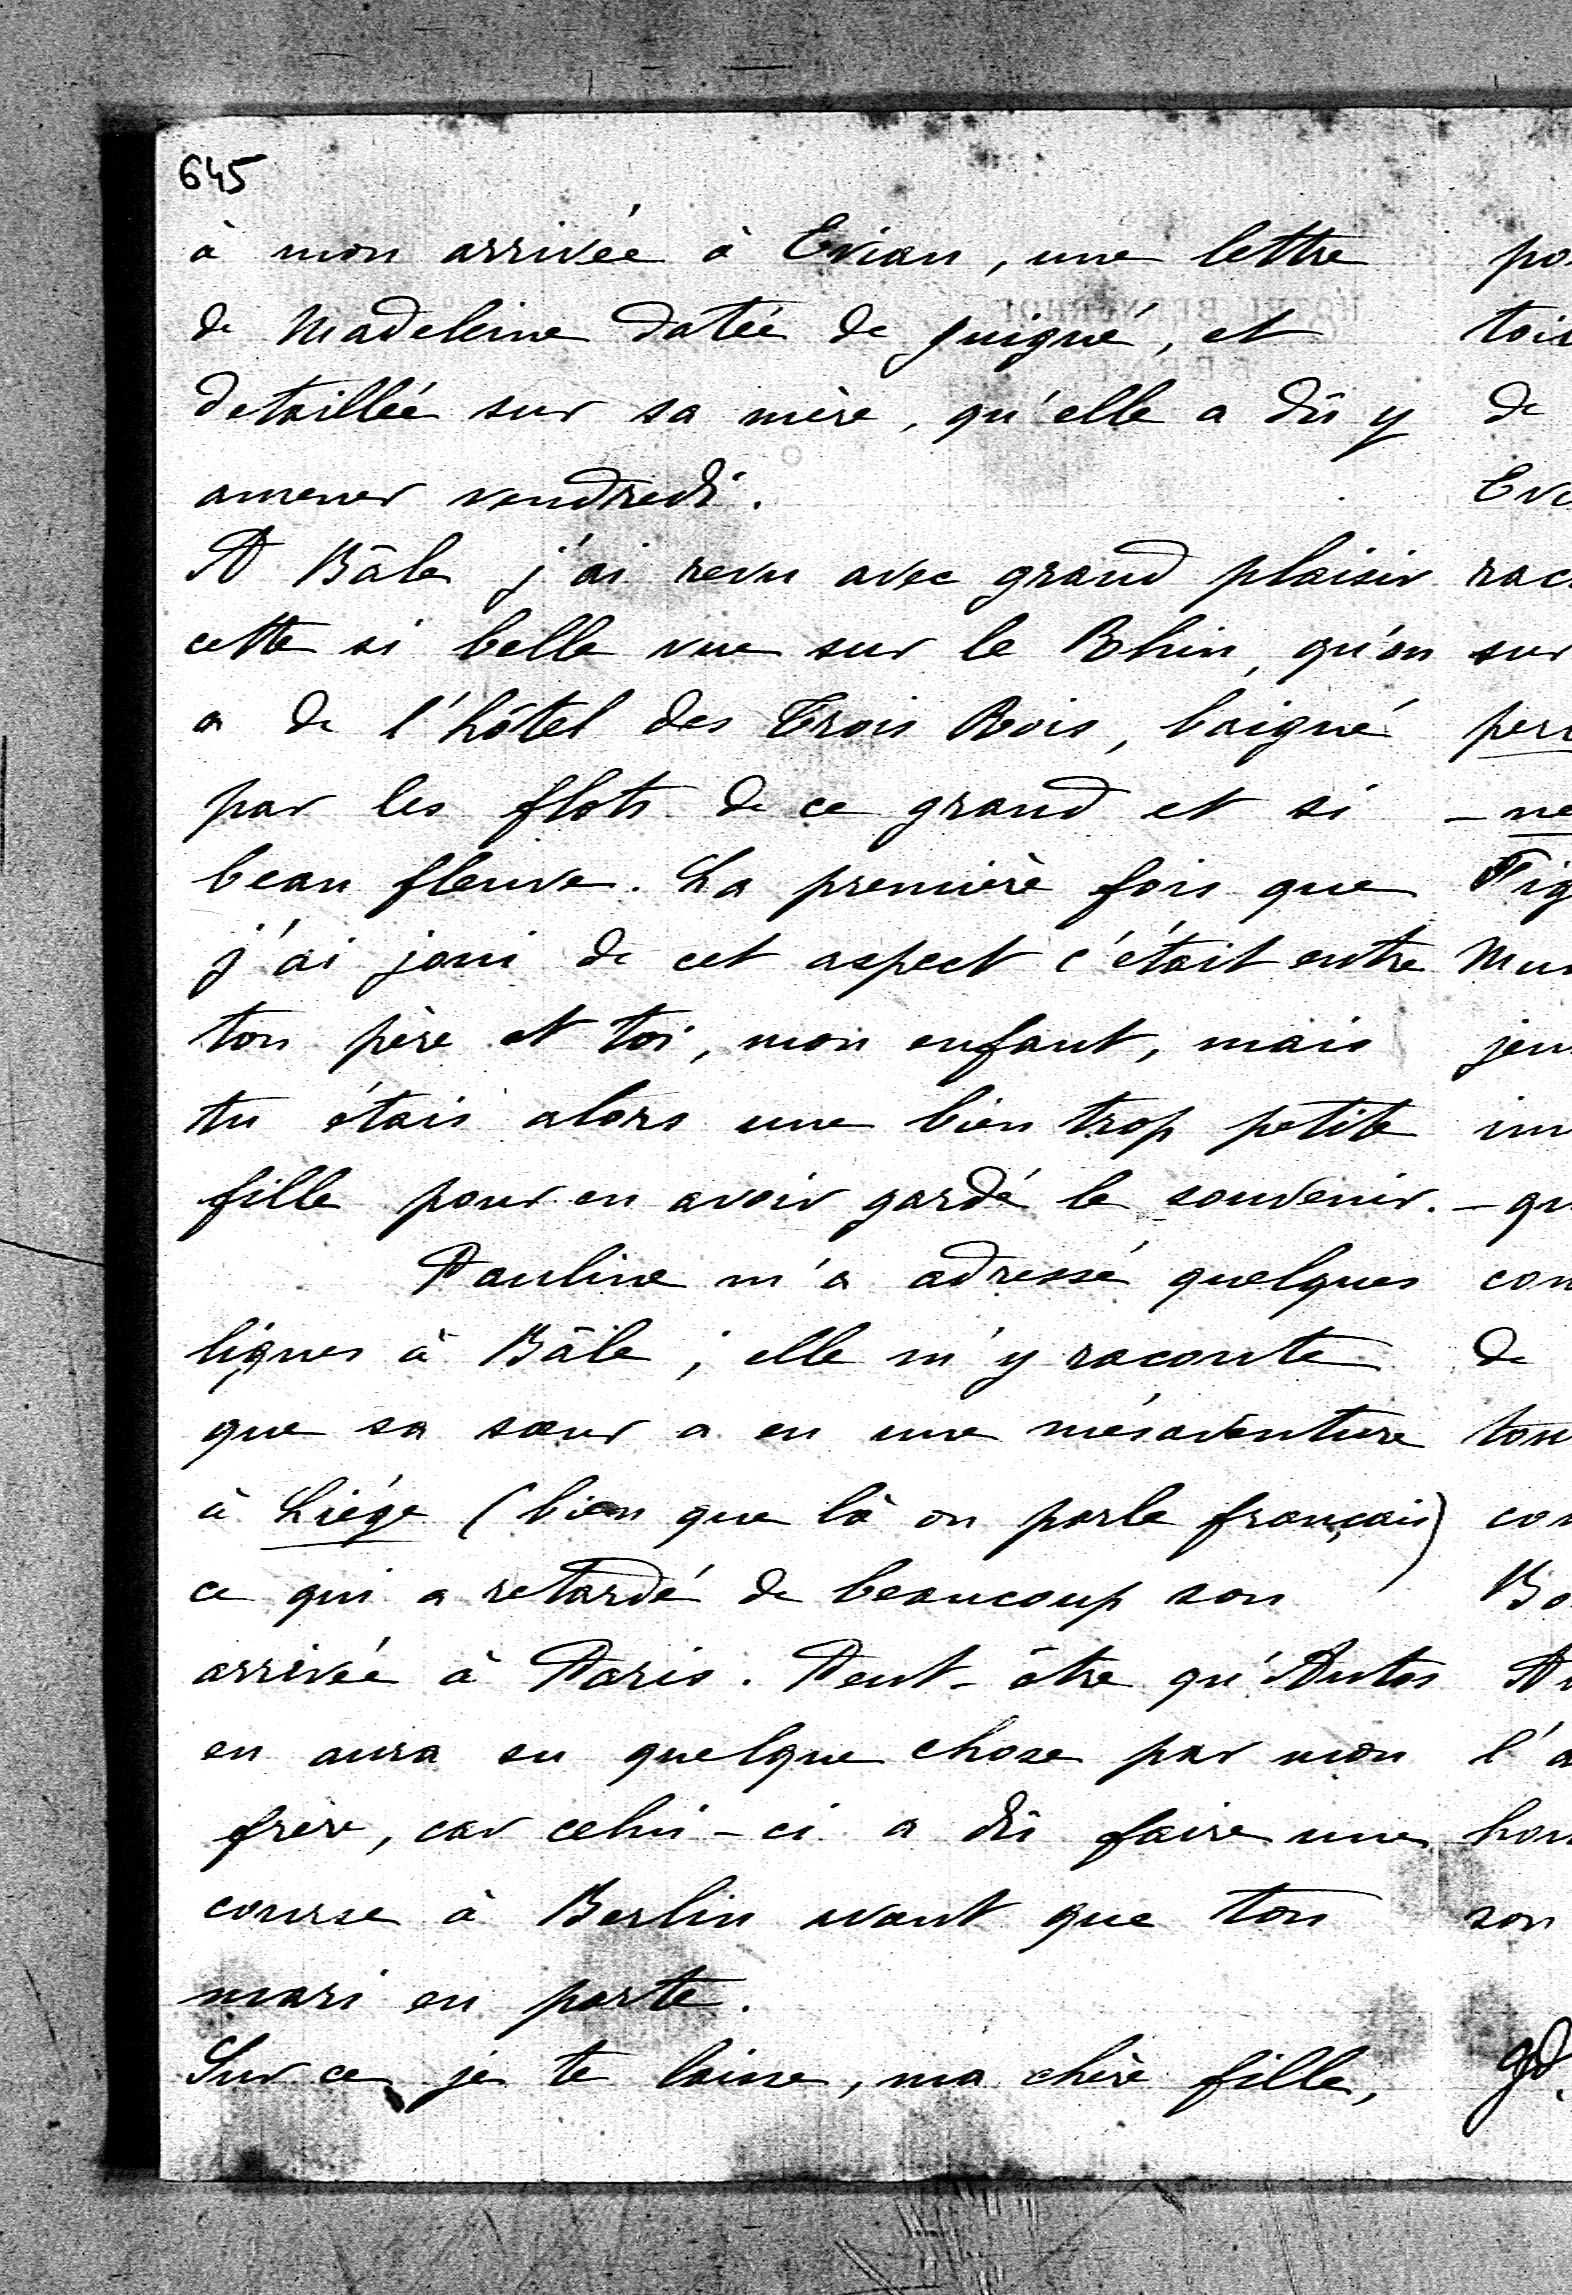 645
à mon arrivée à Evian, une lettre
de Madeleine datée de Juigné, et
detaillée sur sa mère, qu'elle a dû y
amener vendredi.
A Bâle j'ai revu avec grand plaisir
cette si belle vue sur le Rhin, qu'on
a de l'hôtel des Trois Rois, baigné
par les flots de ce grand et si
beau fleuve. La première fois que
j'ai joui de cet aspect c'était entre
ton père et toi, mon enfant, mais
tu étais alors une bien trop petite
fille pour en avoir gardé le souvenir.
Pauline m'a adressé quelques
lignes à Bâle ; elle m'y raconte
que sa sœur a eu une mésaventure
à Liége (bien que là on parle français)
ce qui a retardé de beaucoup son
arrivée à Paris. Peut-être qu'Antos
en aura su quelque chose par mon
frère, car celui-ci a dû faire une
course à Berlin avant que ton
mari en parte.
Sur ce je te laisse, ma chère fille,
po
tois
de
Eve
rac
sur
per
- ne
Fig
Mu
jeu
im
- qu
con
de
tou
con
Bo
A
l'a
hon
son
gd.